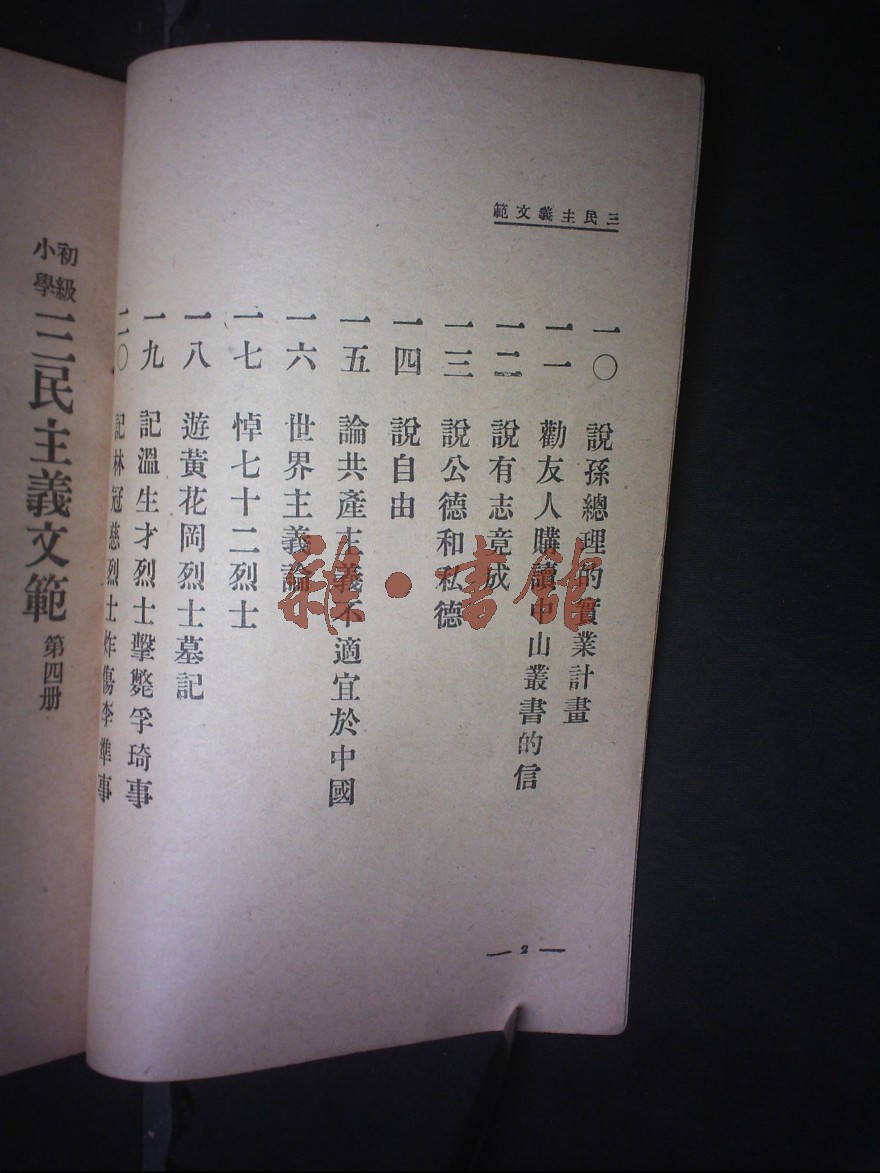 三民主義文範
一〇 說孫總理的實業計畫
一一 勸友人購讀中山叢書的信
一二 說有志竟成
一三 說公德和私德
一四 說自由
一五 論共產主義不適宜於中國
一六 世界主義論
一七 悼七十二烈士
一八 遊黃花岡烈士墓記
一九 記溫生才烈士擊斃孚琦事
二〇 記林冠慈烈士炸傷李準事
— 2 —
初級小學三民主義文範 第四册
雜·書館